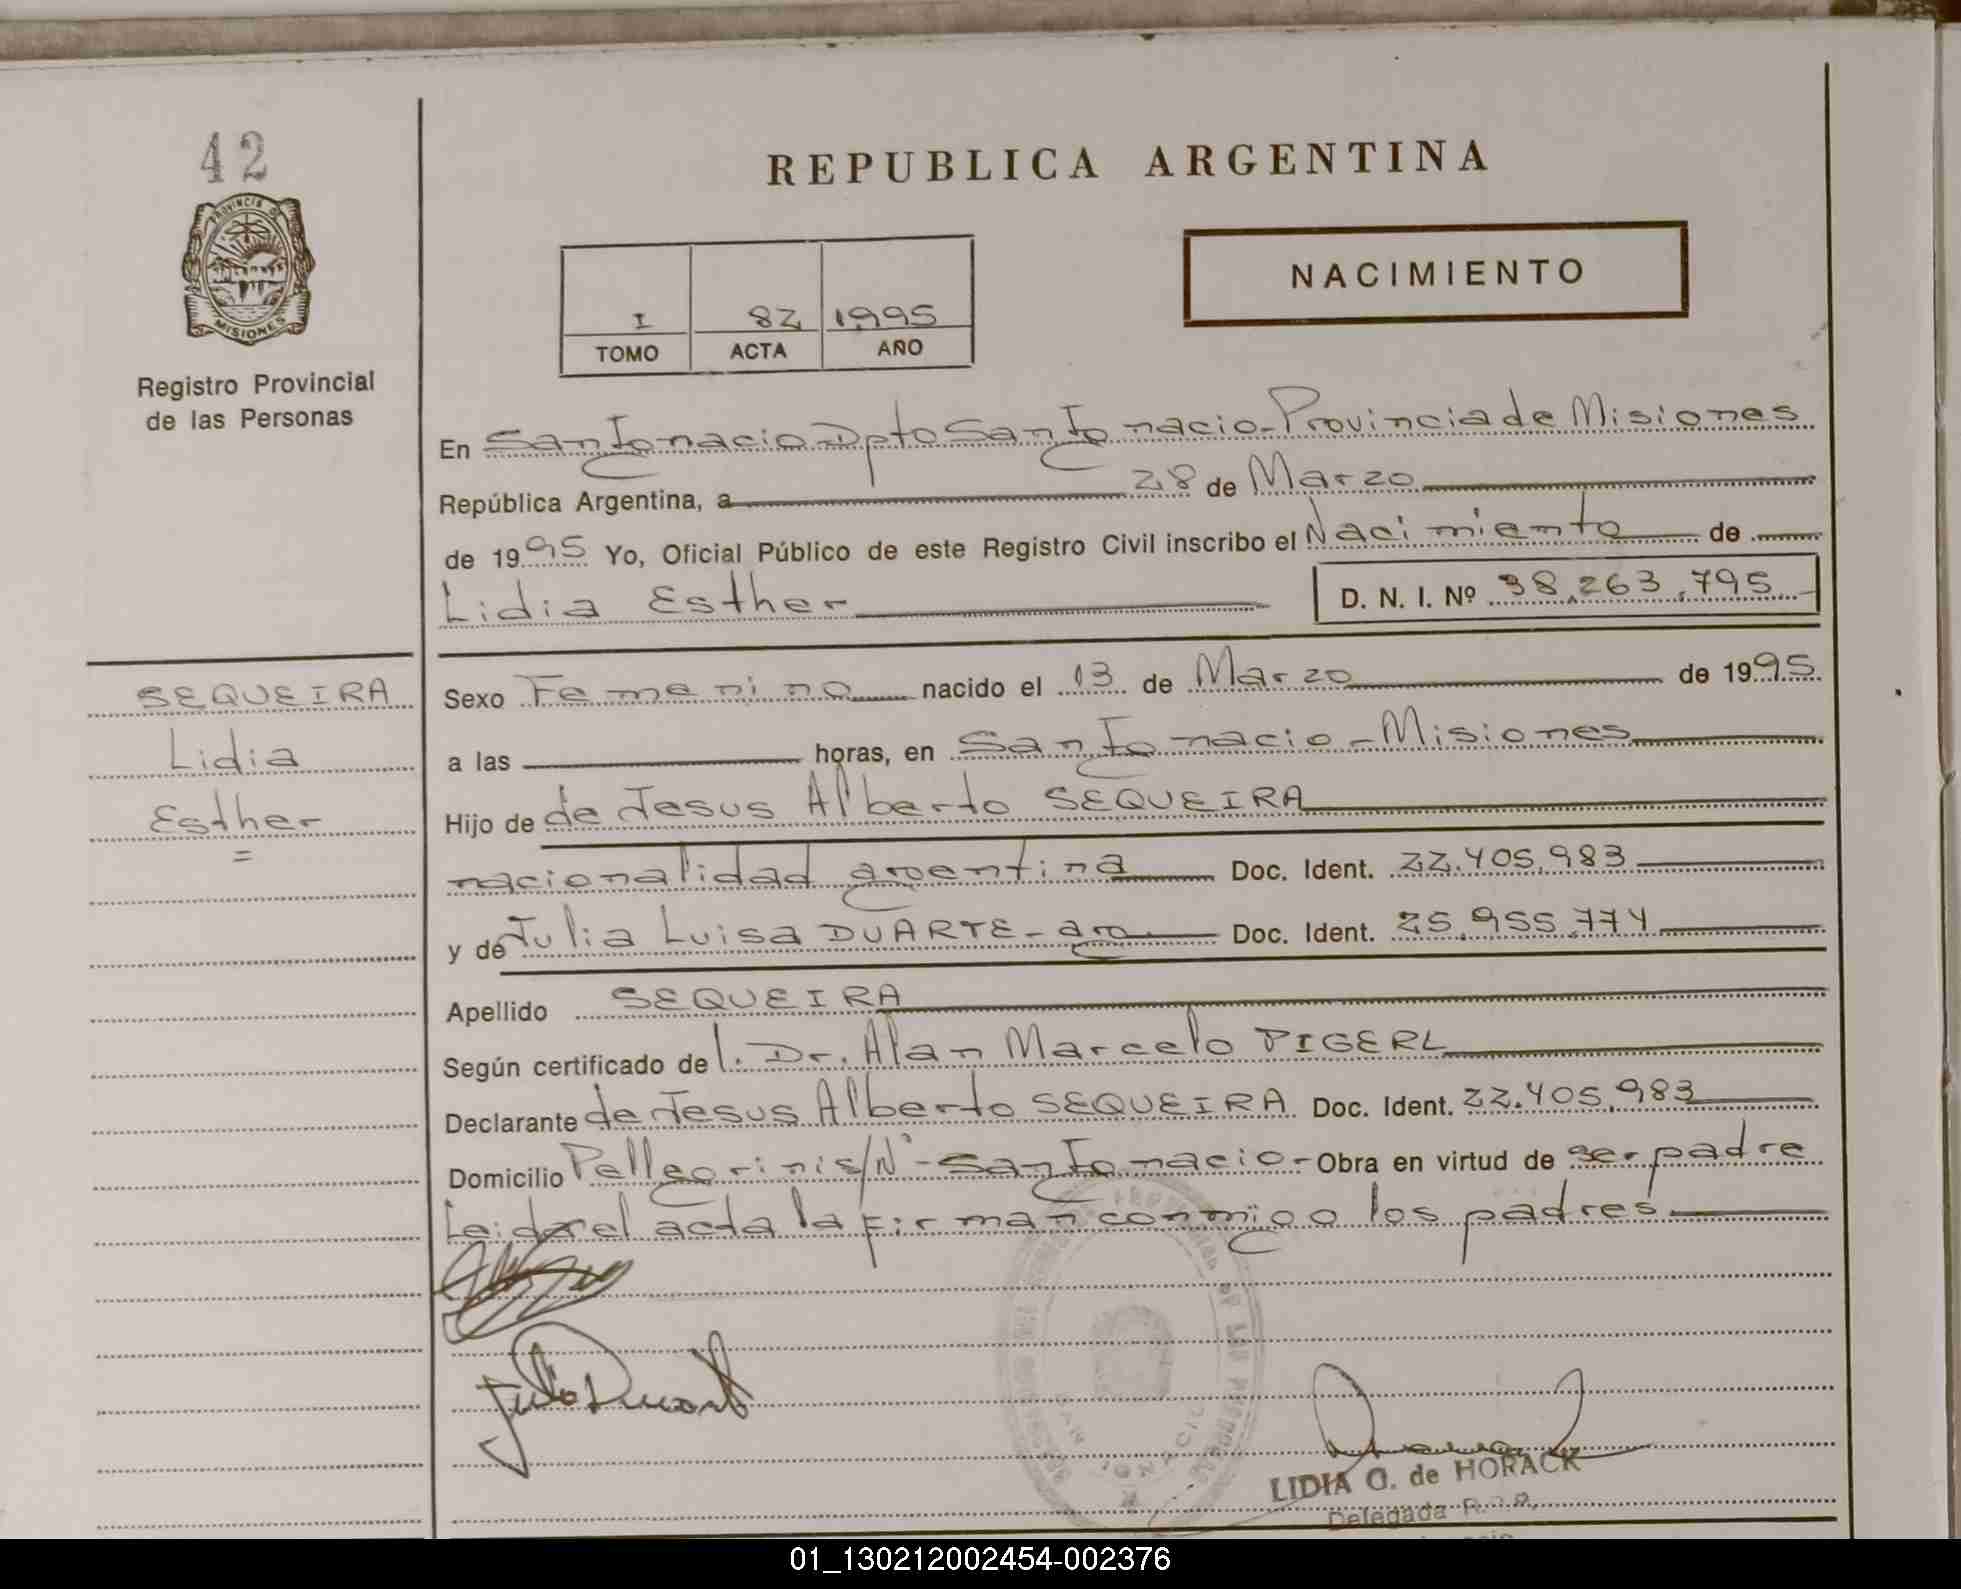 42
PROVINCIA D
MISIONES
Registro Provincial
de las Personas
REPUBLICA ARGENTINA
I 82 1995
TOMO ACTA AÑO
NACIMIENTO
En San Ignacio-Dpto San Ignacio-Provincia de Misiones
República Argentina, a 28 de Marzo
de 1995 Yo, Oficial Público de este Registro Civil inscribo el Nacimiento de
Lidia Esther D. N. I. Nº 38.263.795
SEQUEIRA
Lidia
Esther
=
Sexo Femenino nacido el 13 de Marzo de 1995
a las horas, en San Ignacio-Misiones
Hijo de de Jesus Alberto SEQUEIRA
nacionalidad argentina Doc. Ident. 22.405.983
y de Julia Luisa DUARTE-arg Doc. Ident. 25.955.774
Apellido SEQUEIRA
Según certificado de l. Dr. Alan Marcelo PIGERL
Declarante de Jesus Alberto SEQUEIRA Doc. Ident. 22.405.983
Domicilio Pellegrini s/Nº-San Ignacio- Obra en virtud de ser padre
Leida el acta la firman conmigo los padres
Julia Duarte
LIDIA G. de HORACK
Delegada R.
01_130212002454-002376